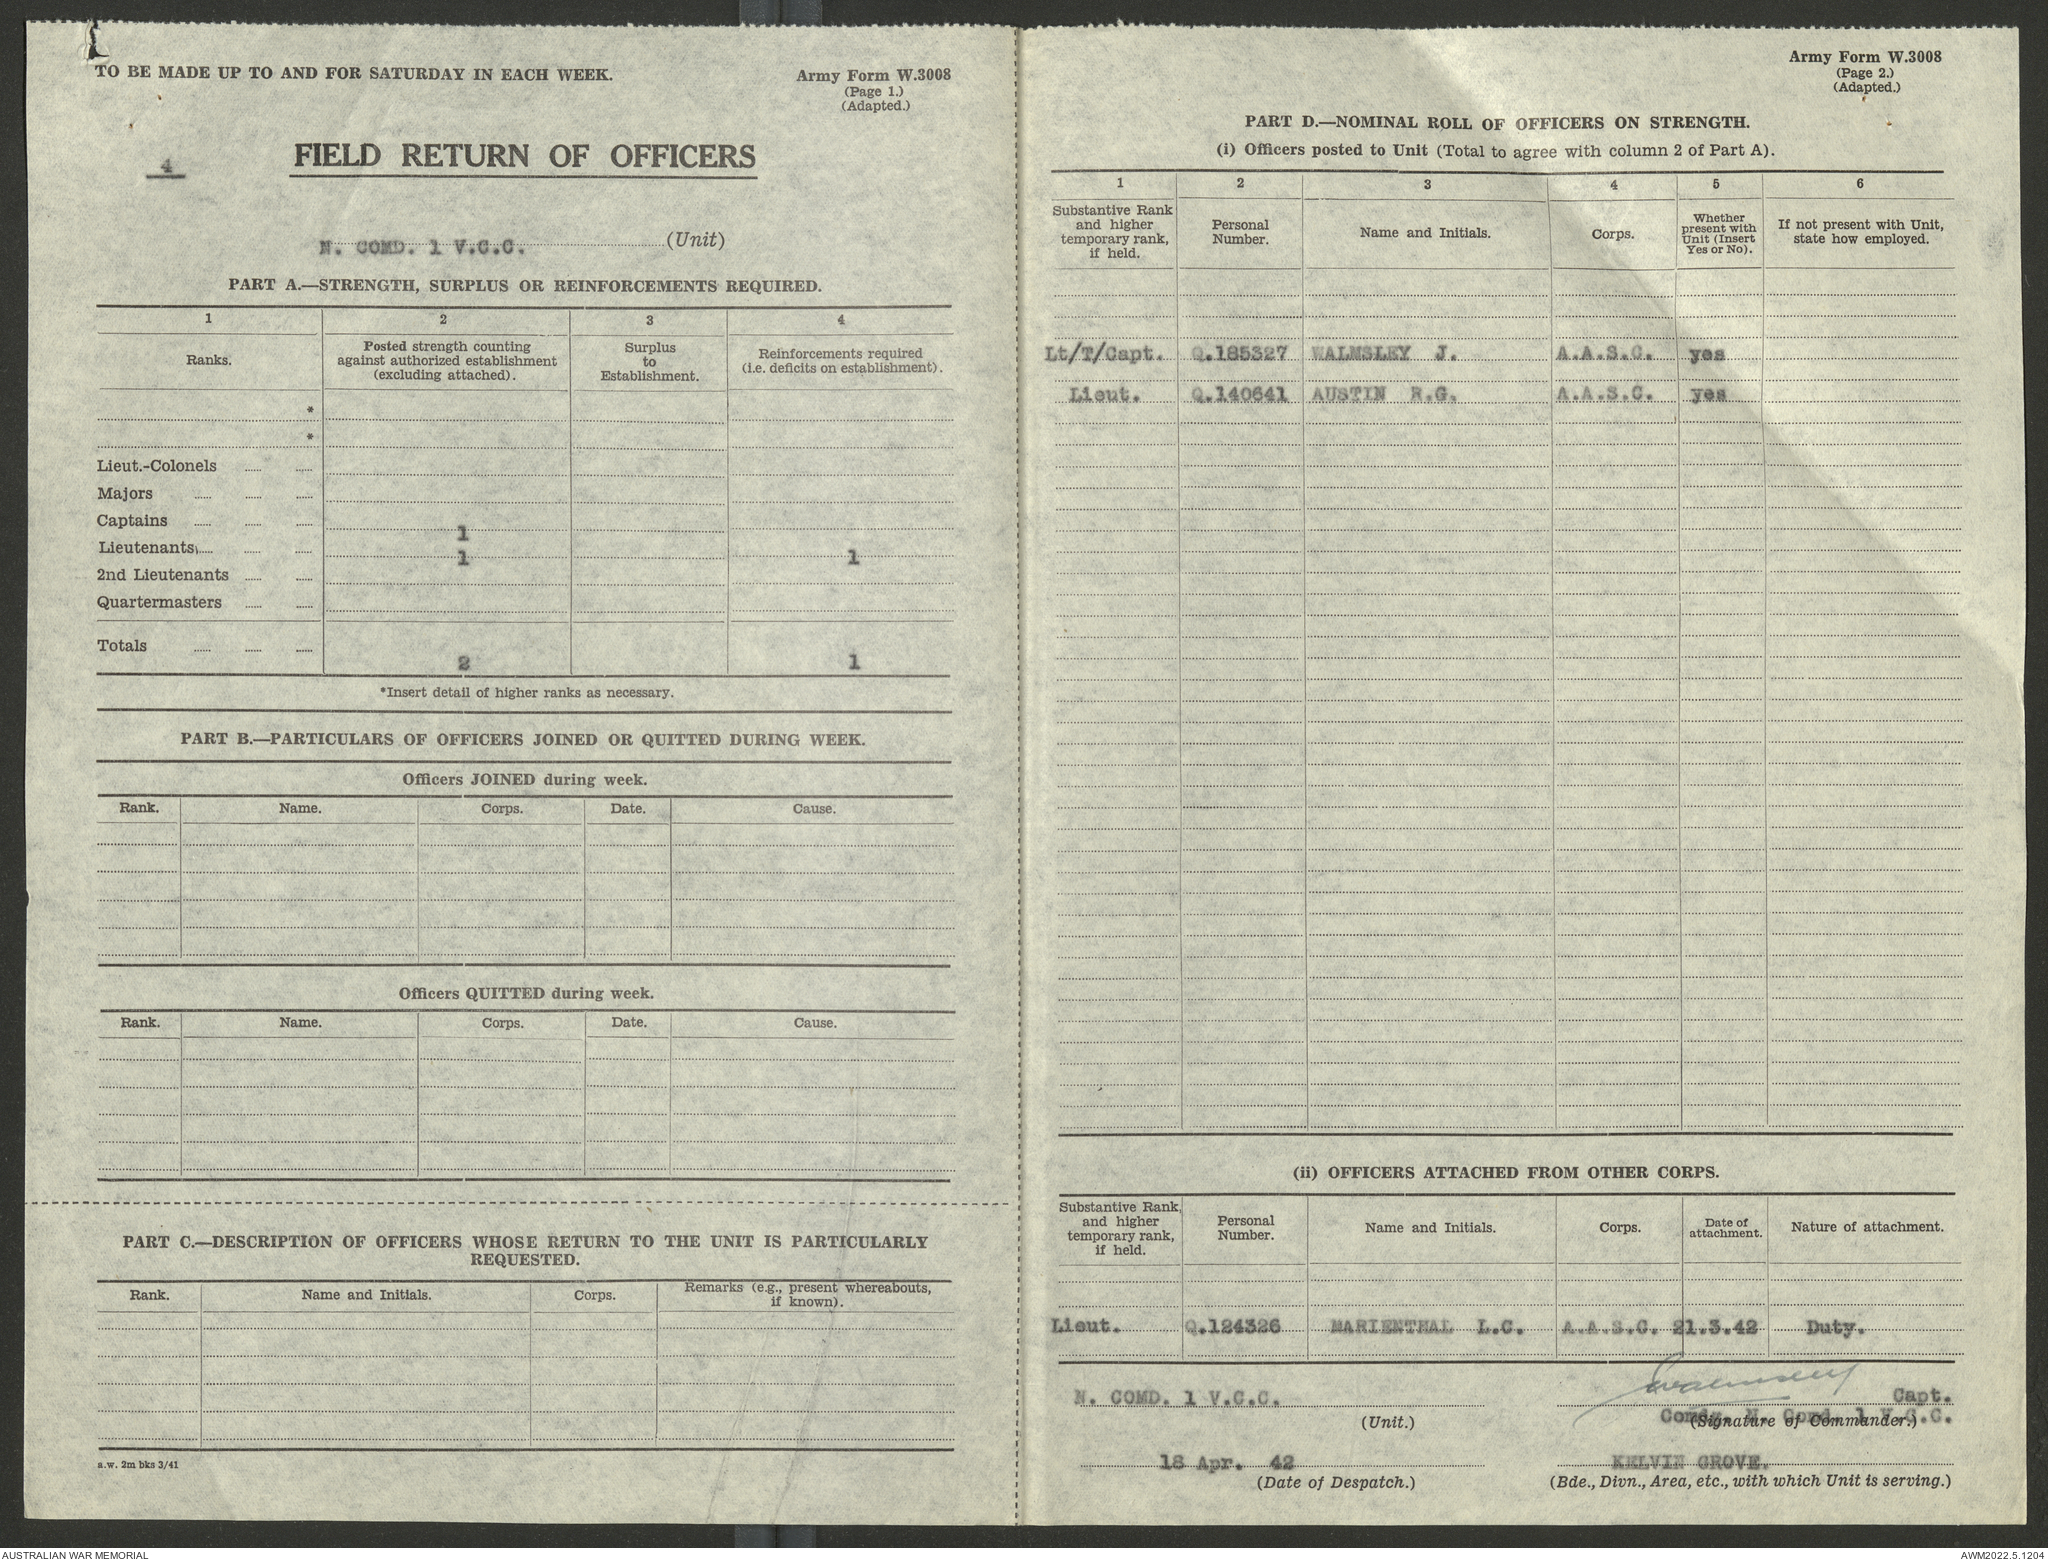 TO BE MADE UP TO AND FOR SATURDAY IN EACH WEEK.
Army Form W.3008
(Page 1.)
(Adapted.)
4
FIELD RETURN OF OFFICERS
N. COMD. 1 V.C.C. (Unit)
PART A.—STRENGTH, SURPLUS OR REINFORCEMENTS REQUIRED.
1 2 3 4
Ranks. Posted strength counting against authorized establishment (excluding attached). Surplus to Establishment. Reinforcements required (i.e. deficits on establishment).
*
*
Lieut.-Colonels
Majors
Captains 1
Lieutenants 1 1
2nd Lieutenants
Quartermasters
Totals 2 1
*Insert detail of higher ranks as necessary.
PART B.—PARTICULARS OF OFFICERS JOINED OR QUITTED DURING WEEK.
Officers JOINED during week.
Rank. Name. Corps. Date. Cause.
Officers QUITTED during week.
Rank. Name. Corps. Date. Cause.
PART C.—DESCRIPTION OF OFFICERS WHOSE RETURN TO THE UNIT IS PARTICULARLY
REQUESTED.
Rank. Name and Initials. Corps. Remarks (e.g., present whereabouts, if known).
a.w. 2m bks 3/41
Army Form W.3008
(Page 2.)
(Adapted.)
PART D.—NOMINAL ROLL OF OFFICERS ON STRENGTH.
(i) Officers posted to Unit (Total to agree with column 2 of Part A).
1 2 3 4 5 6
Substantive Rank and higher temporary rank, if held. Personal Number. Name and Initials. Corps. Whether present with Unit (Insert Yes or No). If not present with Unit, state how employed.
Lt/T/Capt. Q.185327 WALMSLEY J. A.A.S.C. yes
Lieut. Q.140641 AUSTIN R.G. A.A.S.C. yes
(ii) OFFICERS ATTACHED FROM OTHER CORPS.
Substantive Rank, and higher temporary rank, if held. Personal Number. Name and Initials. Corps. Date of attachment. Nature of attachment.
Lieut. Q.124326 MARIENTHAL L.C. A.A.S.C. 21.3.42 Duty.
N. COMD. 1 V.C.C.
(Unit.)
JWalmsley Capt.
Comdr. N. Comd. 1 V.C.C.
(Signature of Commander.)
18 Apr. 42
(Date of Despatch.)
KELVIN GROVE.
(Bde., Divn., Area, etc., with which Unit is serving.)
AUSTRALIAN WAR MEMORIAL
AWM2022.5.1204